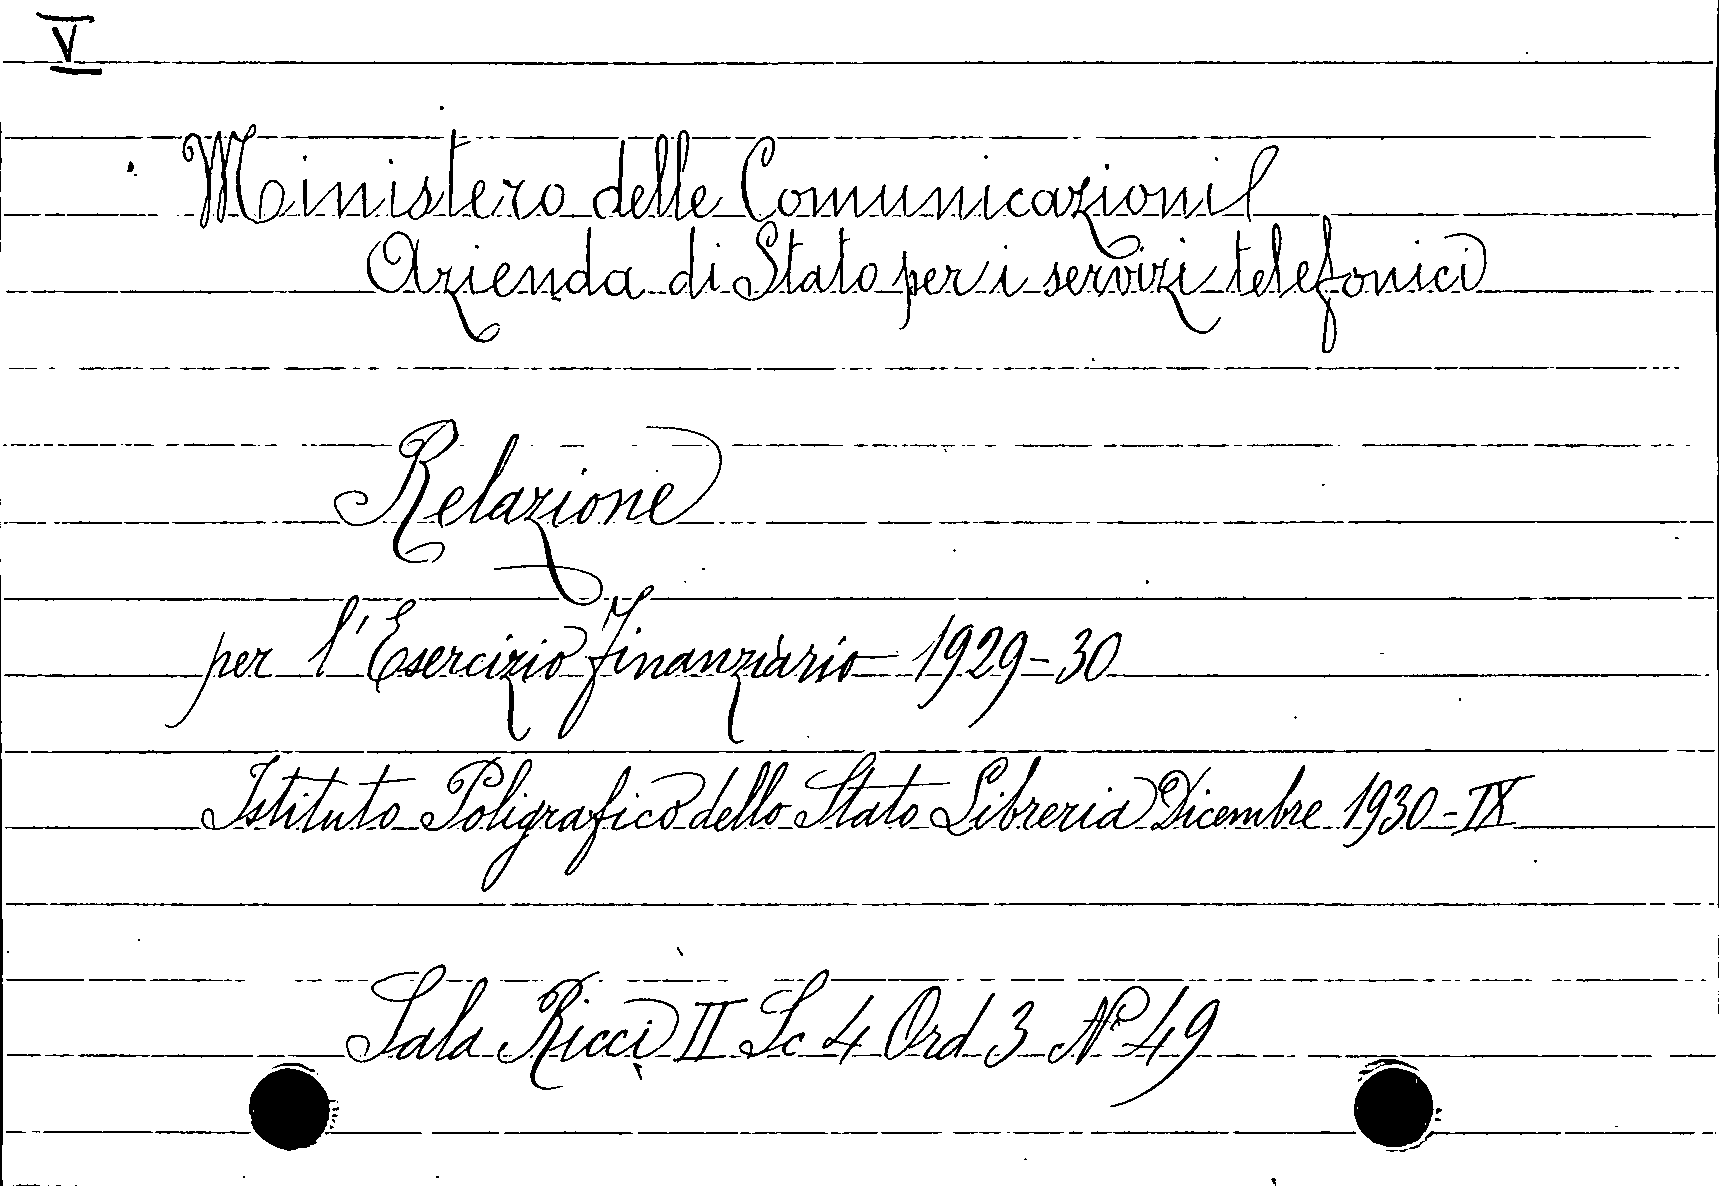 V
Ministero delle Comunicazioni
Azienda di Stato per i servizi telefonici
Relazione
per l'Esercizio finanziario 1929-30
Istituto Poligrafico dello Stato Libreria Dicembre 1930-IX
Sala Ricci II Sc 4 Ord 3 N° 49